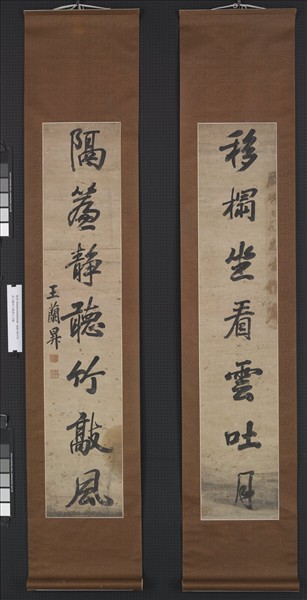 移榻坐看雲吐月
隔簾靜聽竹敲風
王蘭昇